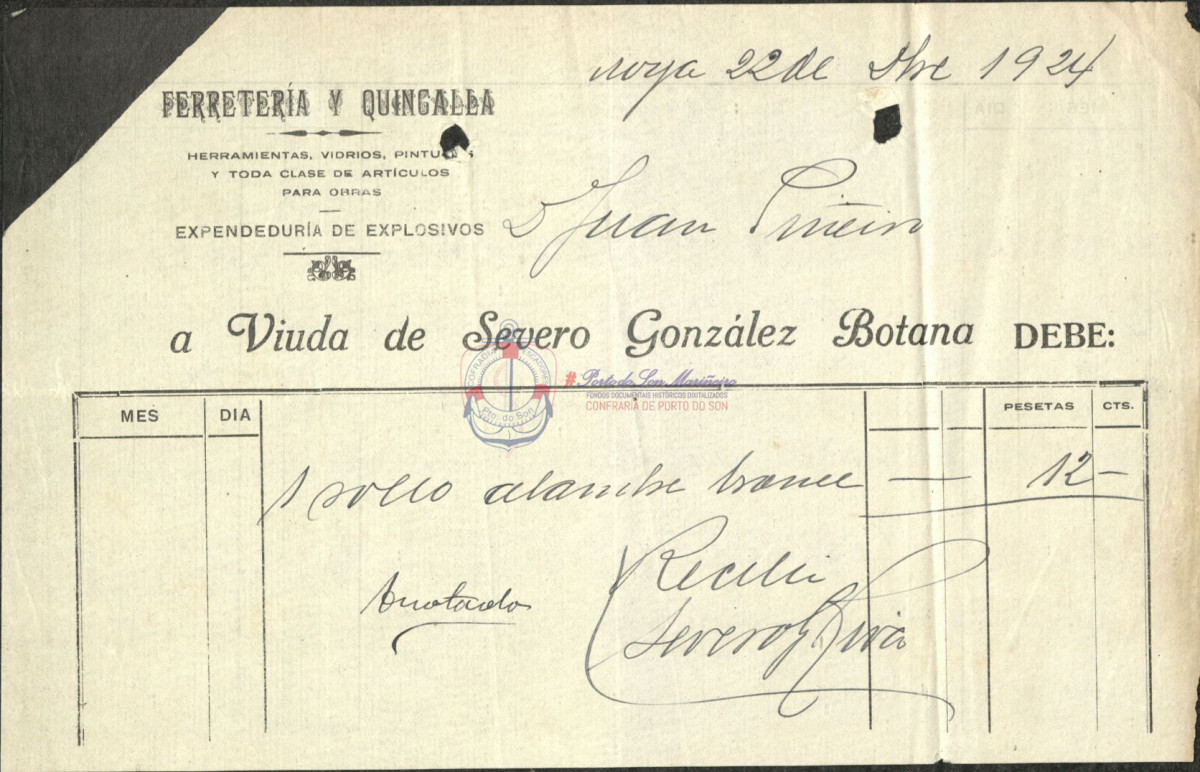 Noya 22 de Dbre 1924
FERRETERÍA Y QUINCALLA
HERRAMIENTAS, VIDRIOS, PINTURAS
Y TODA CLASE DE ARTÍCULOS
PARA OBRAS
EXPENDEDURÍA DE EXPLOSIVOS
D Juan Piñeiro
a Viuda de Severo González Botana DEBE:
COFRADIA
Pto. do Son
# Porto do Son Mariñeiro
FONDOS DOCUMENTAIS HISTÓRICOS DIXITALIZADOS
CONFRARÍA DE PORTO DO SON
MES DIA PESETAS CTS.
1 rollo alambre — 12 —
Anotado
Recibí
Severo G.